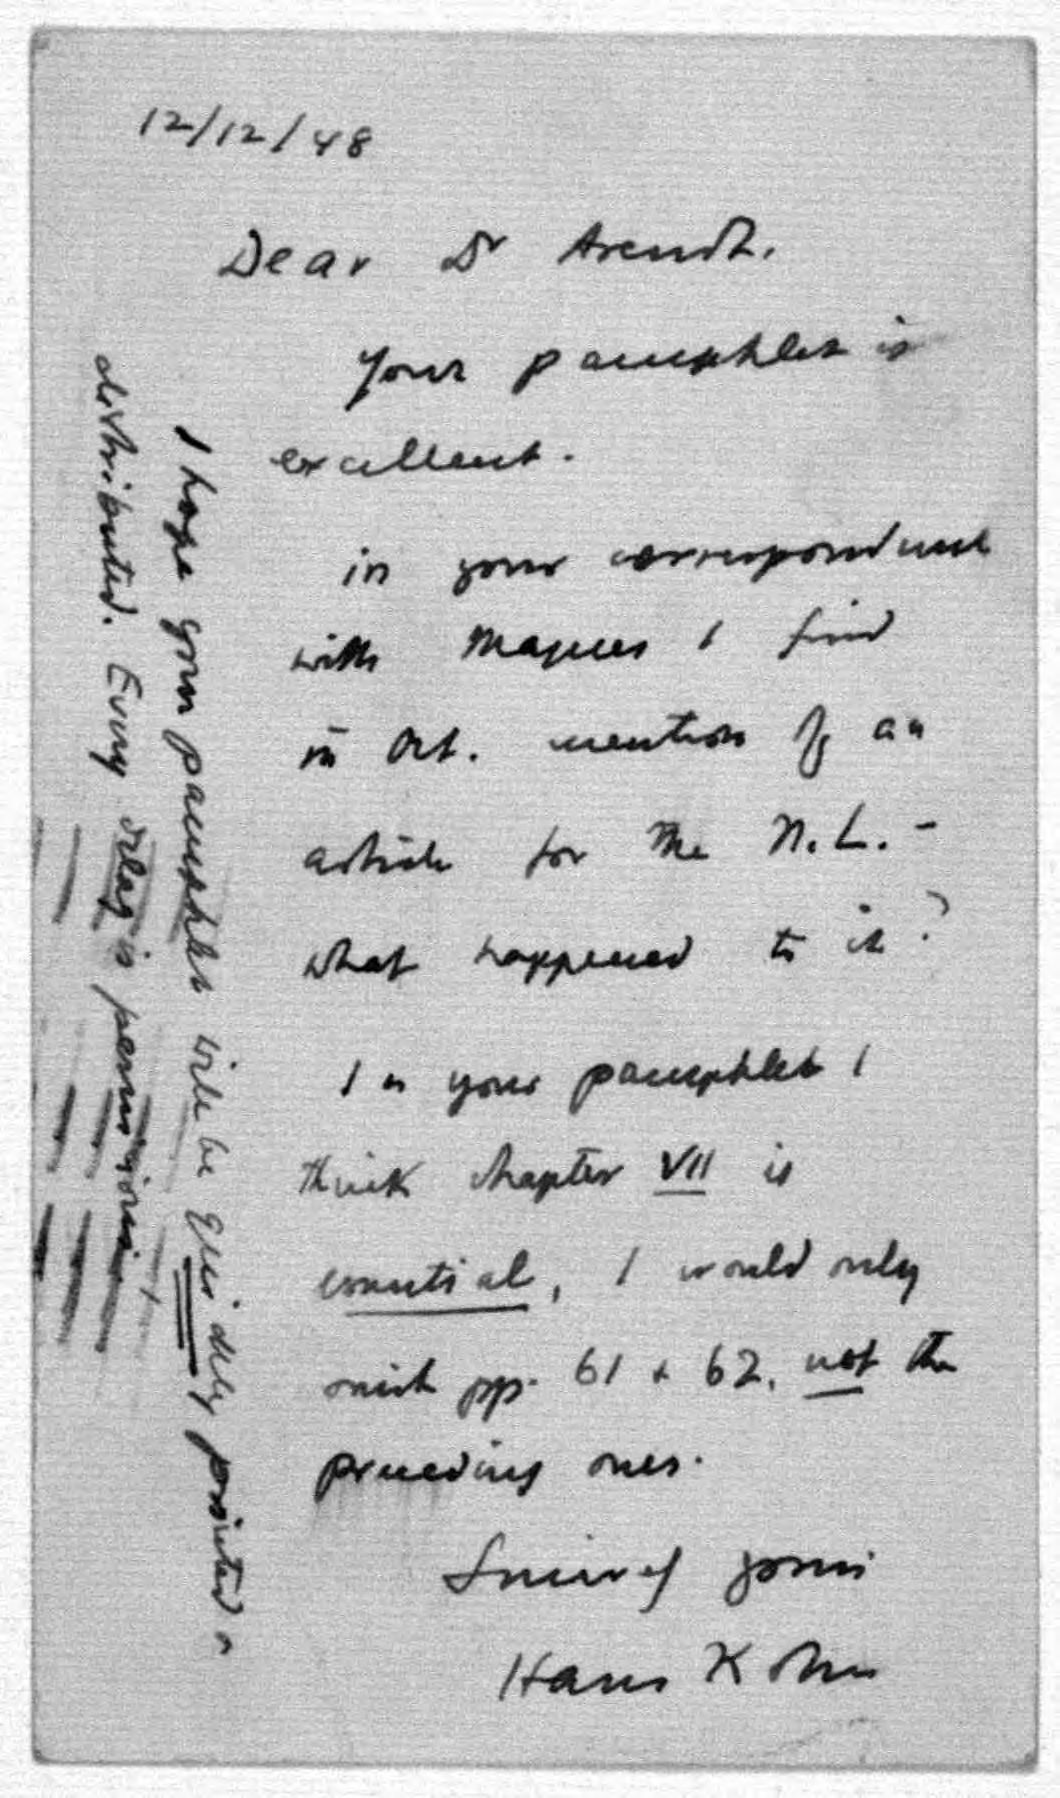 12/12/48
Dear Dr Arendt,
your pamphlet is
excellent.
in your correspondence
with Magnes I find
in Oct. mention of an
article for the N.L. –
what happened to it?
In your pamphlet I
think chapter VII is
essential, I would only
omit pp. 61 + 62, not the
preceding ones.
Sincerely yours
Hans Kohn
I hope your pamphlet will be quickly printed +
distributed. Every delay is pernicious.